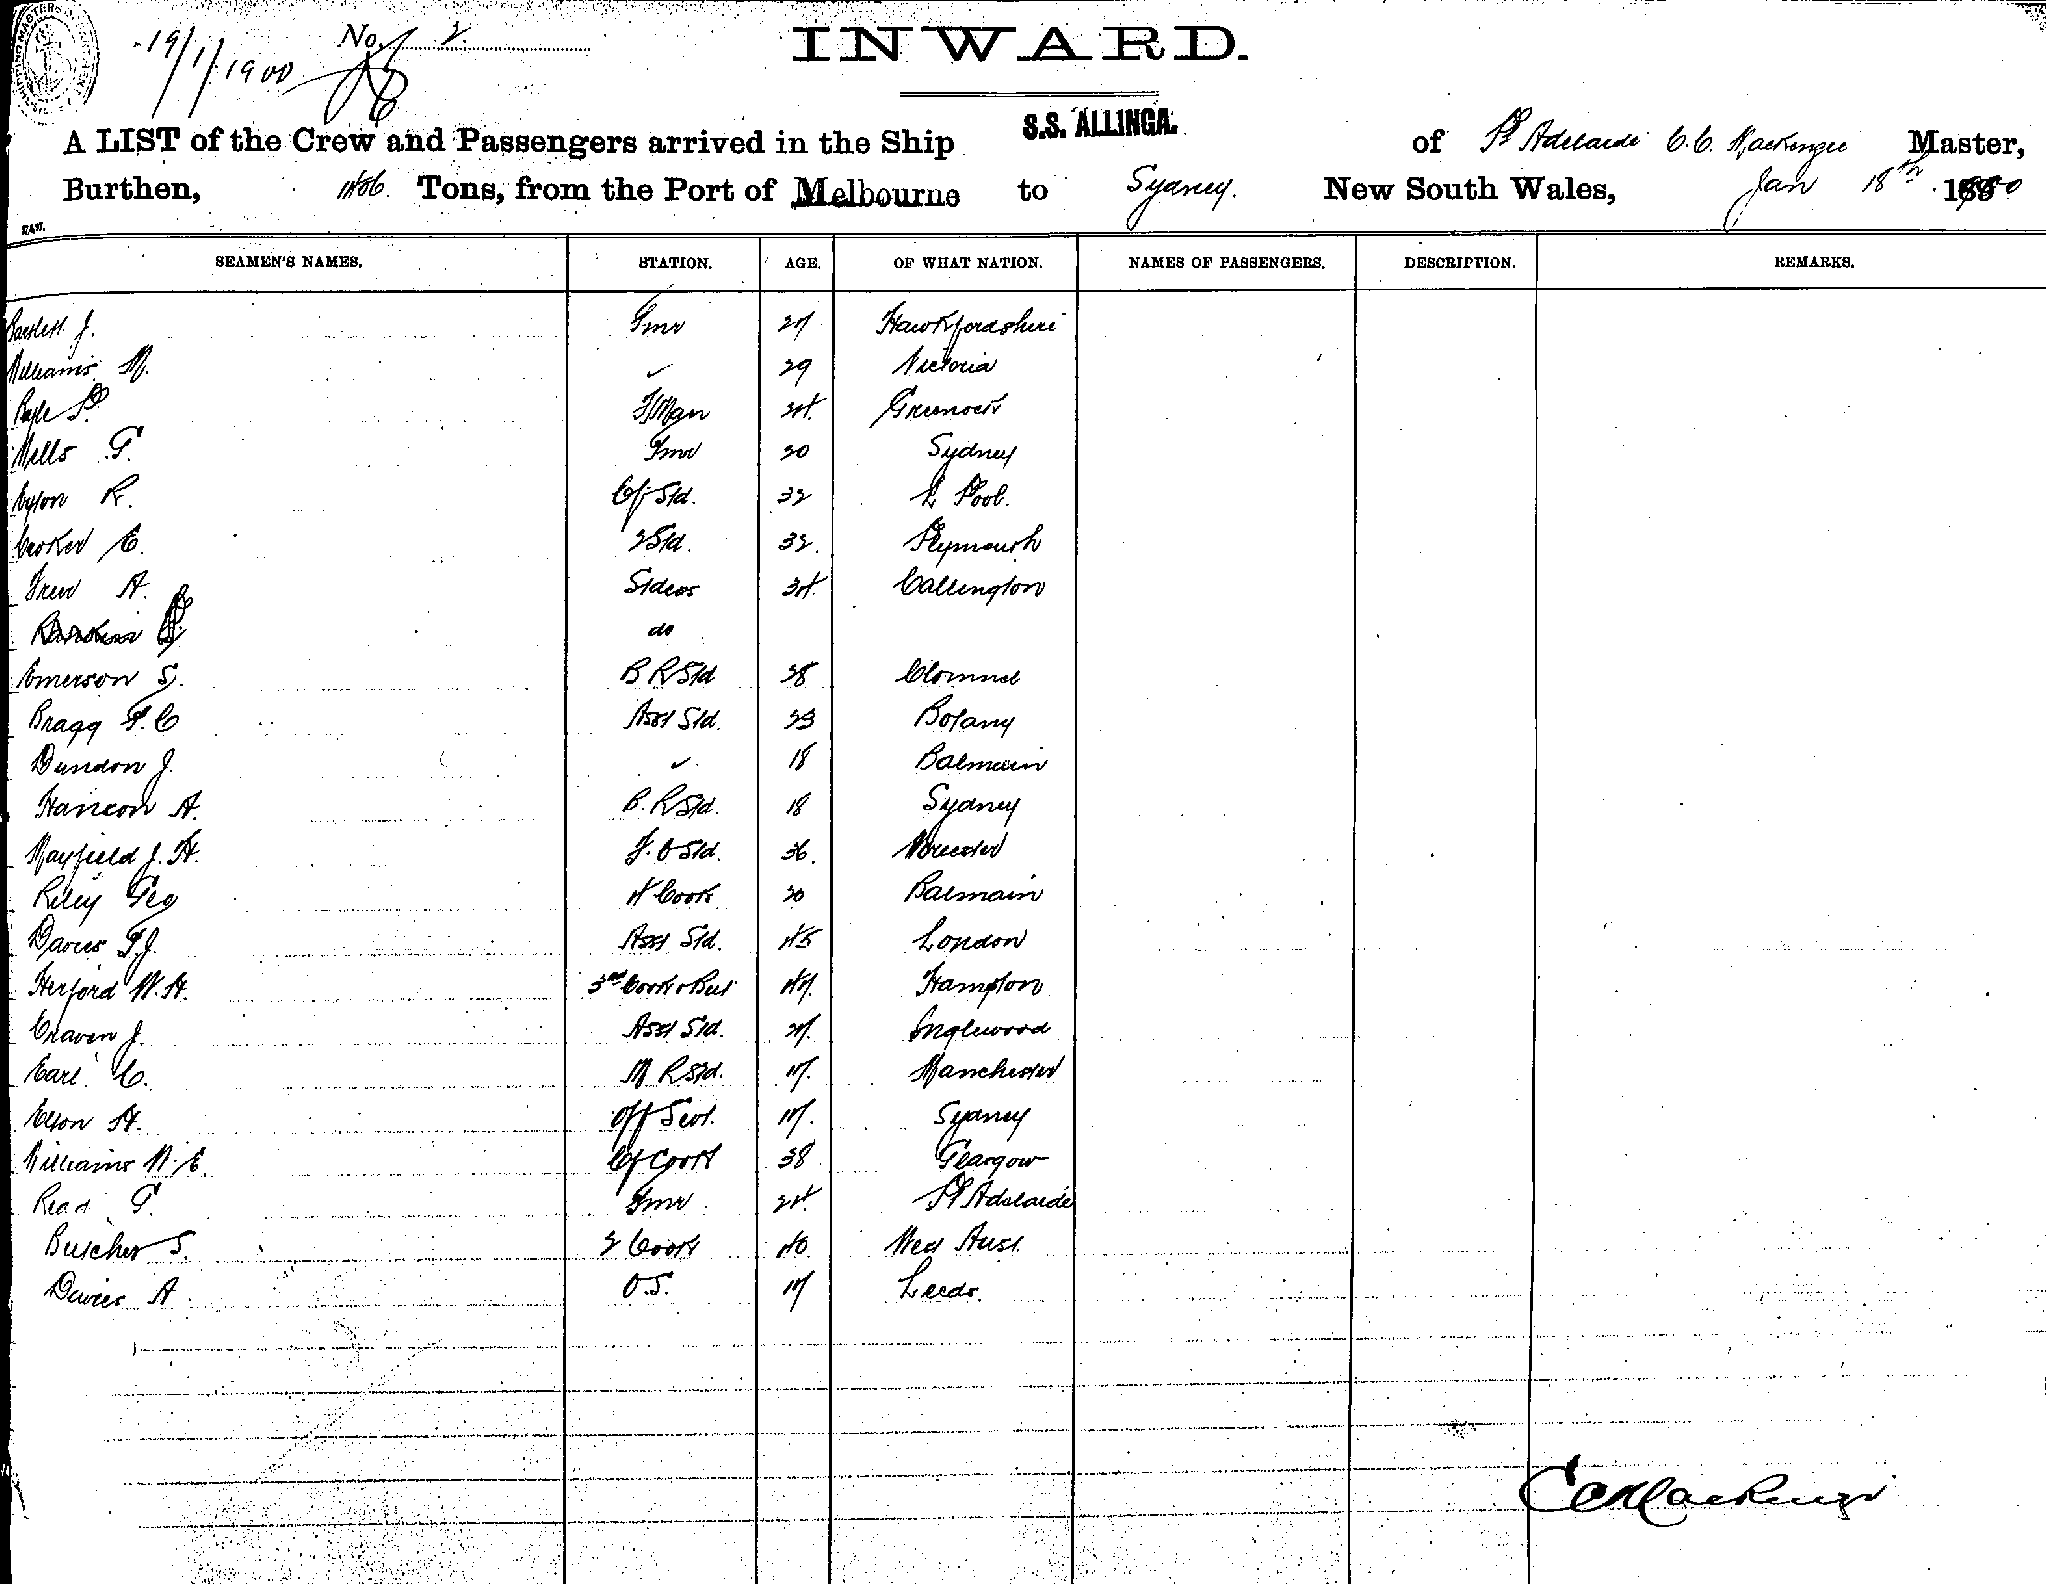 19/1/1900 No. 2
INWARD.
A LIST of the Crew and Passengers arrived in the Ship S.S. ALLINGA. of Pt Adelaide C.C. Mackenzie Master,
Burthen, Tons, from the Port of Melbourne to Sydney. New South Wales, Jan 18th 1900
SEAMEN'S NAMES. STATION. AGE. OF WHAT NATION. NAMES OF PASSENGERS. DESCRIPTION. REMARKS.
J. Fmr 27
Williams M. 29 Victoria
P. F/Man 24 Greenock
Mells G. Fmr 20 Sydney
R. Cf Std. 32 L Pool.
Crocker E. 2 Std. 32. Plymouth
Frew A. Stdess 34. Callington
do
Emerson S. B R Std 28 Clonmel
Bragg F. C Asst Std. 23 Botany
Dundon J. 18 Balmain
A. B. R Std. 18 Sydney
Mayfield J. H. F. C Std. 36. Worcester
Riley Geo 4 Cook 20 Balmain
Davies F.J. Asst Std. 45 London
Herford W. H. 3rd Cook & But 47. Hampton
Craven J. Asst Std. 27. Inglewood
Earl C. M R Std. 17. Manchester
Elson H. Off Servt. 17. Sydney
Williams W. E. Cf Cook 38 Glasgow
Read G. Fmr 24. Pt Adelaide
Butcher S. 2 Cook 40 West Aust.
Davies A O.S. 17 Leeds.
C C Mackenzie